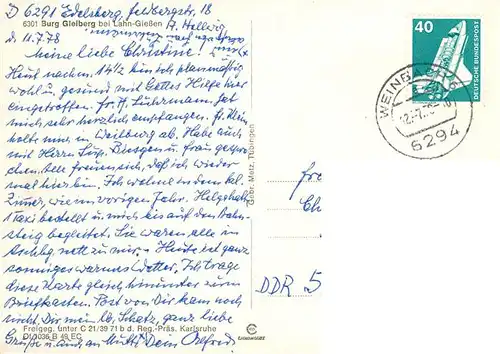 D 6291 Edelsberg, Feldbergstr. 18
6301 Burg Gleiberg bei Lahn-Gießen
A. Hellwig
d. 11.7.78
Meine liebe Christine!
Heut nachm. 14½ bin ich planmäßig
wohl u. gesund mit Gottes Hilfe hier
eingetroffen. Fr. A. Lührmann hat
mich sehr herzlich empfangen. H. Klein
holte mich in Weilburg ab. Habe auch
mit Herrn Sup. Biesgen u. Frau gespro-
chen. Alle freuen sich, daß ich wieder
mal hier bin. Ich wohne in dem kl.
Zimmer, wie im vorigen Jahr. Helga hat
1 Taxi bestellt u. mich bis auf den Bahn-
steig begleitet. Sie waren alle in
nett zu mir. Heute ist ganz
sonniges warmes Wetter. Ich trage
diese Karte gleich hinunter zum
Briefkasten. Post von Dir kam noch
nicht. Dir mein lb. Schatz, ganz liebe
Freigeg. unter C 21/39 71 b d. Reg.-Präs. Karlsruhe
Grüße u. auch an Mutti Dein Alfred
Gbr. Metz, Tübingen
40
DEUTSCHE BUNDESPOST
WEINBACH
6294
Fr
Ch
DDR 5